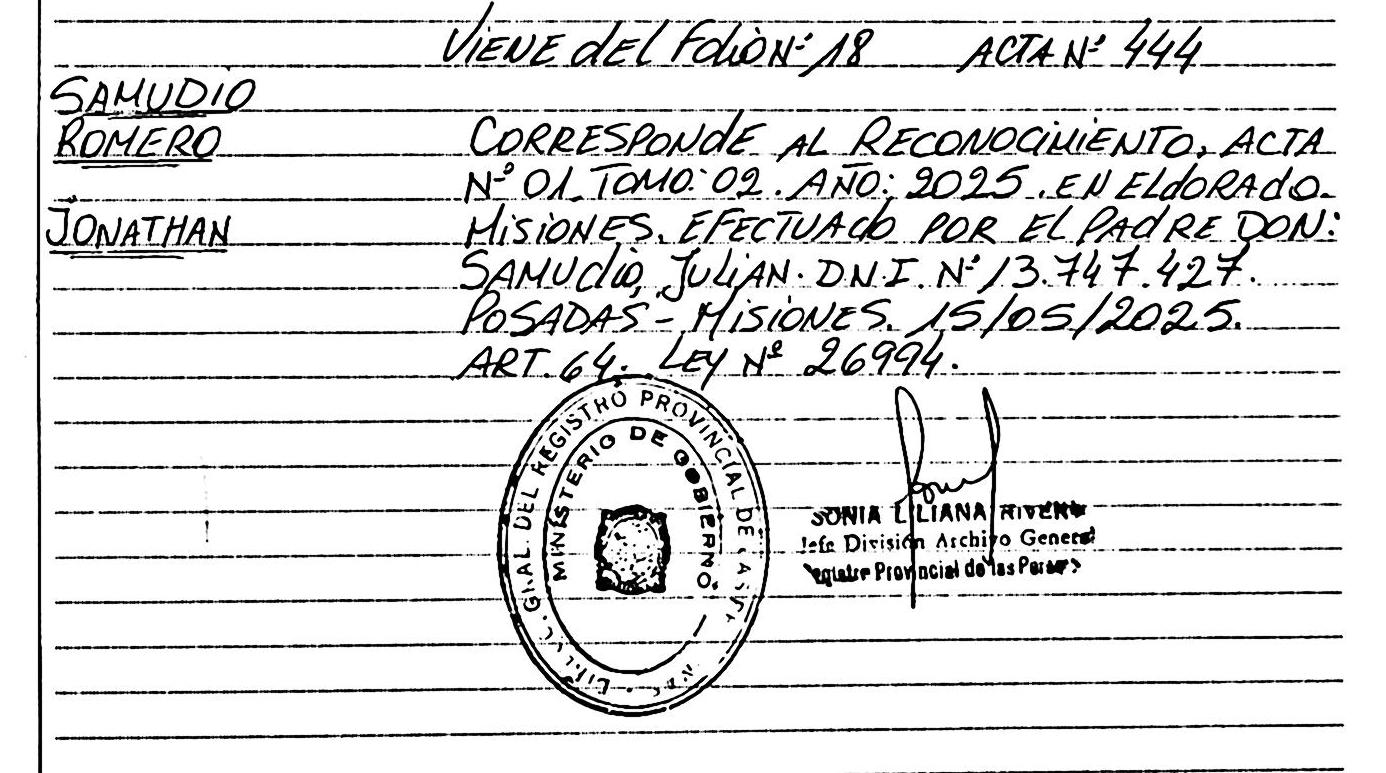 Viene del Folio Nº 18 ACTA Nº 444
SAMUDIO
ROMERO
JONATHAN
CORRESPONDE AL RECONOCIMIENTO, ACTA
Nº 01. TOMO: 02. AÑO: 2025. EN ELdORAdO.
MISIONES. EFECTUAdO POR EL PAdRE DON:
SAMUdio, JULiAN. D.N.I. Nº 13.747.427.
POSADAS - MISIONES. 15/05/2025.
ART. 64. LEY Nº 26994.
GRAL DEL REGISTRO PROVINCIAL DE LAS
MINISTERIO DE GOBIERNO
SONIA LILIANA RIVERO
Jefe División Archivo General
Registro Provincial de las Personas